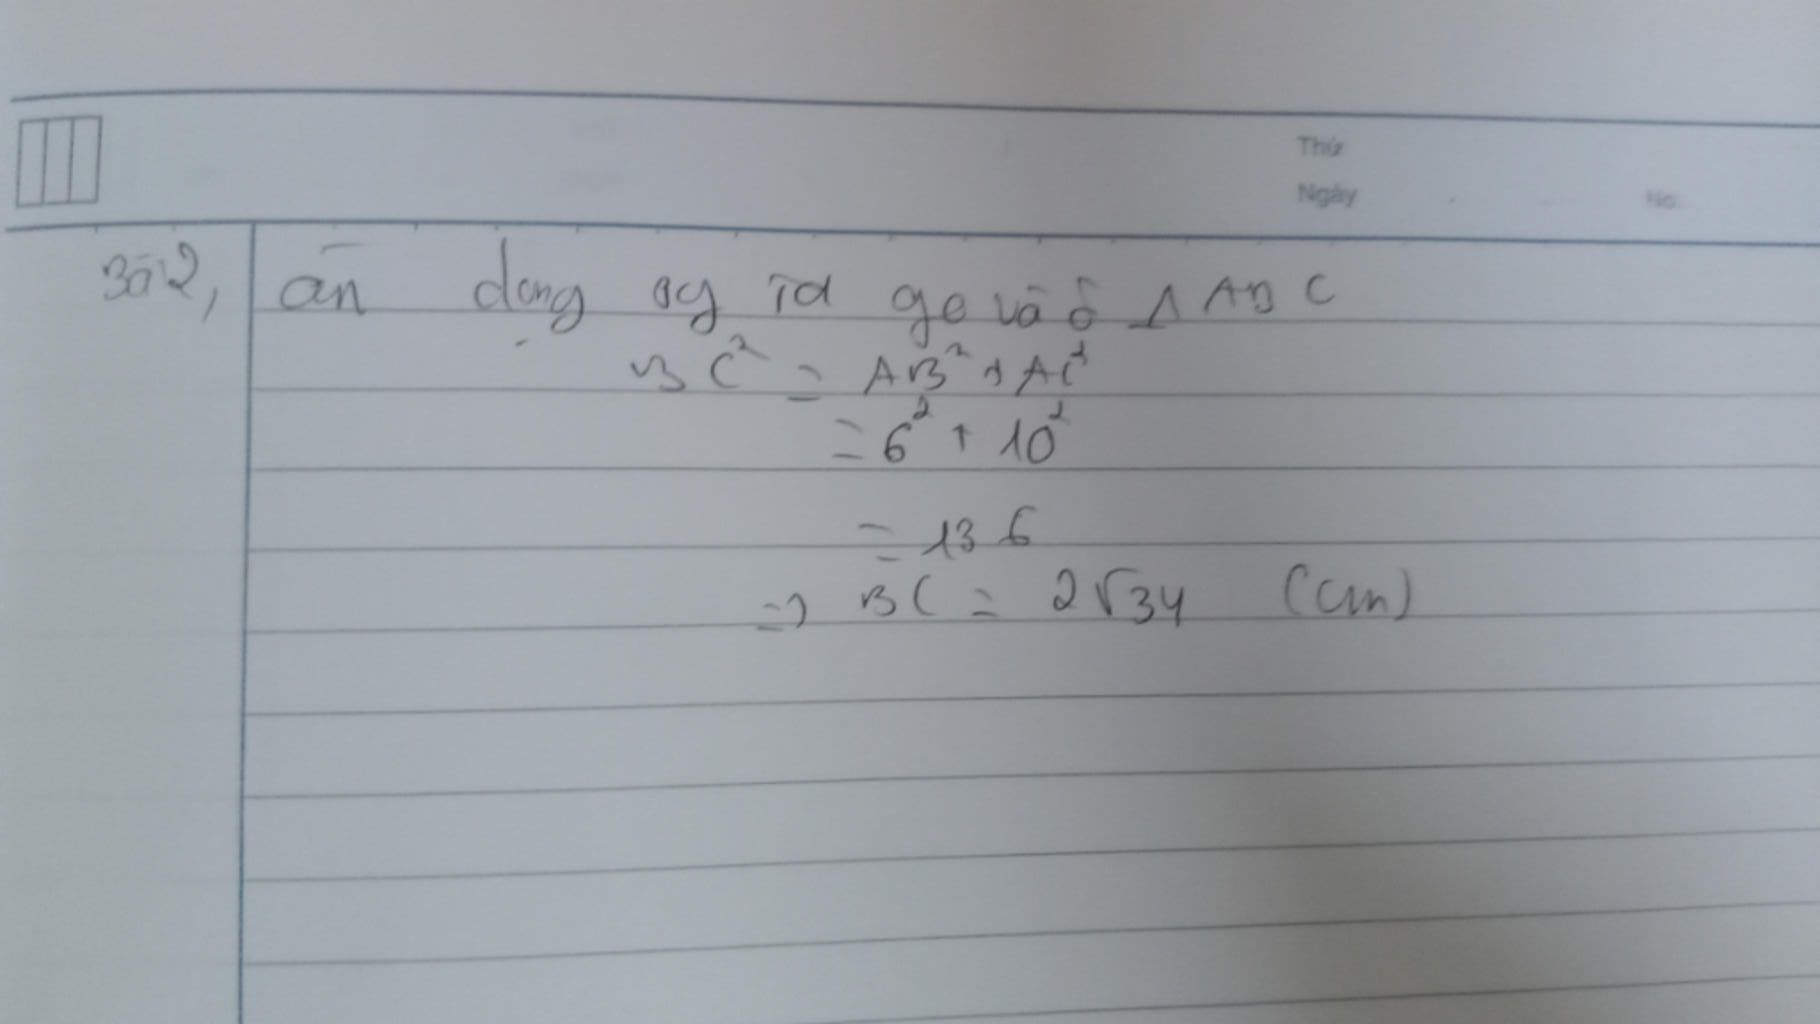 Thứ
Ngày No.
Bài 2, dụng vào Δ ABC
BC² = AB² + AC²
= 6² + 10²
= 136
=> BC = 2√34 (cm)